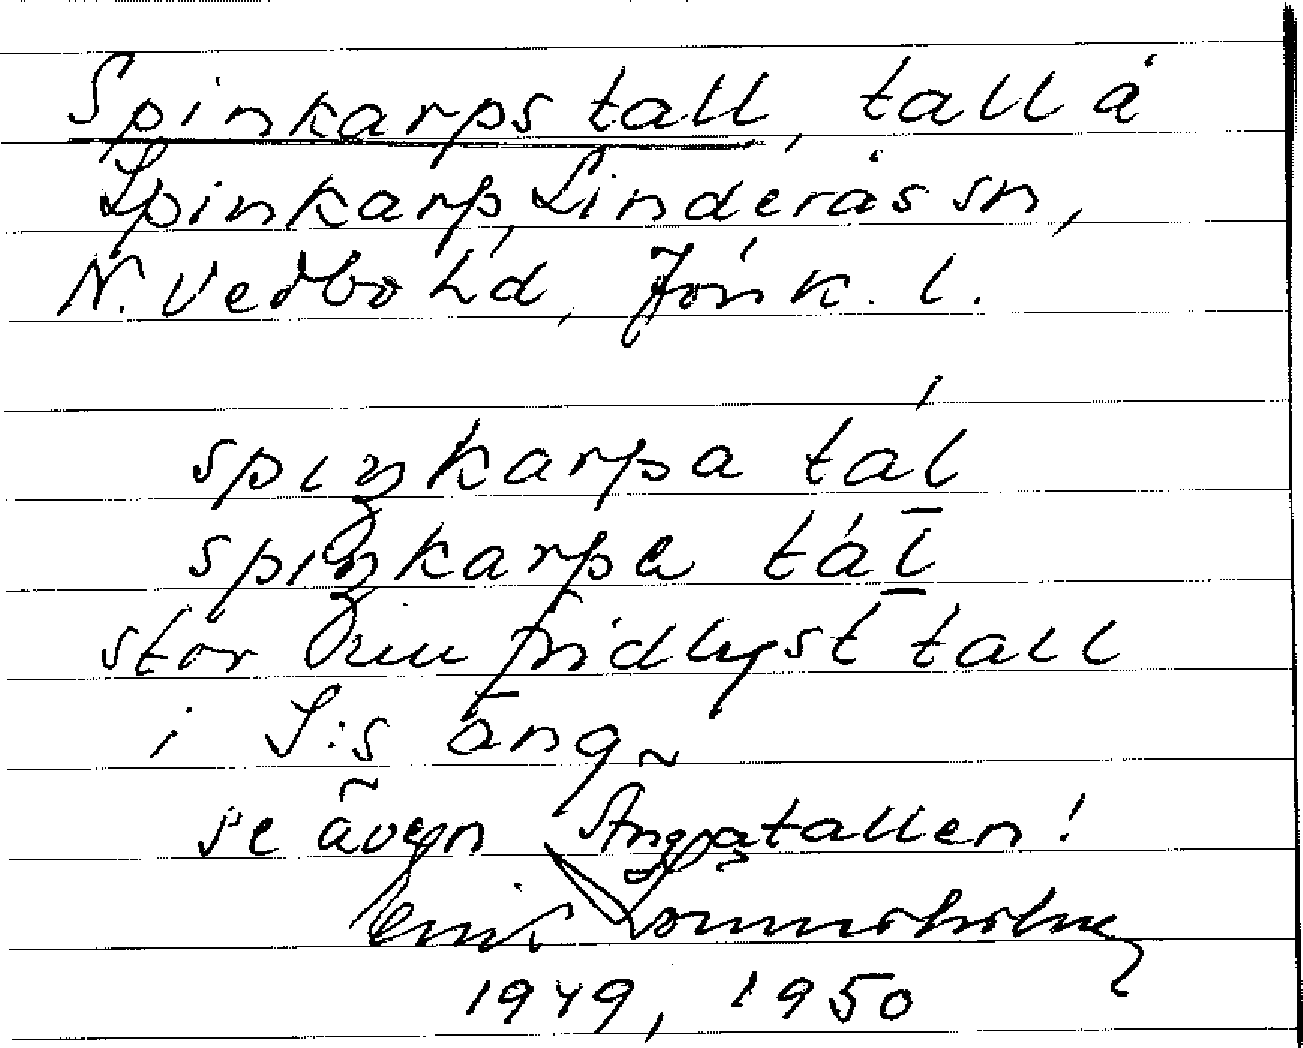 Spinkarps tall, tall å
Spinkarp, Linderås sn,
N. Vedbo hd, Jönk. l.
spiŋkarpa tál
spiŋkarpa tál
stor fridlyst tall
i S:s äng
se även Ängatallen!
1949, 1950